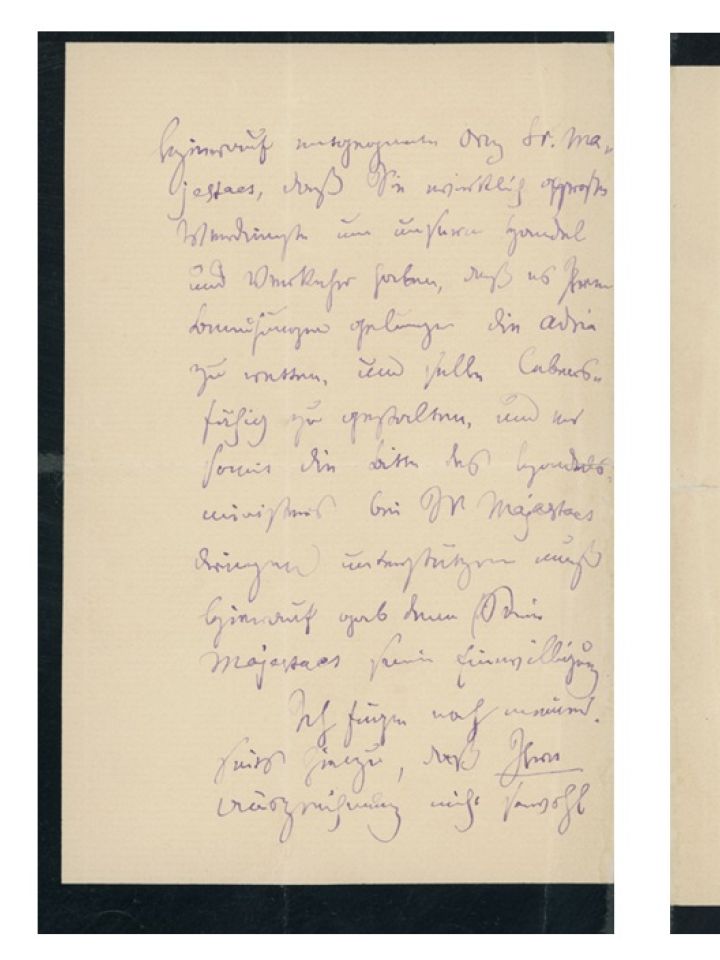 Hierauf entgegnete Orczy Sr. Ma-
jestaet, daß Sie wirklich große
Verdienste um unsern Handel
und Verkehr haben, daß es Ihren
Bemühungen gelungen die Adria
zu retten, und selbe Lebens-
fähig zu gestalten, und er
somit die Bitte des Handels-
ministers bei Sr Majestaet
dringend unterstützen muß
Hierauf gab denn Seine
Majestaet seine Einwilligung
Ich füge noch meiner-
seits hinzu, daß Ihre
Auszeichnung nicht sowohl